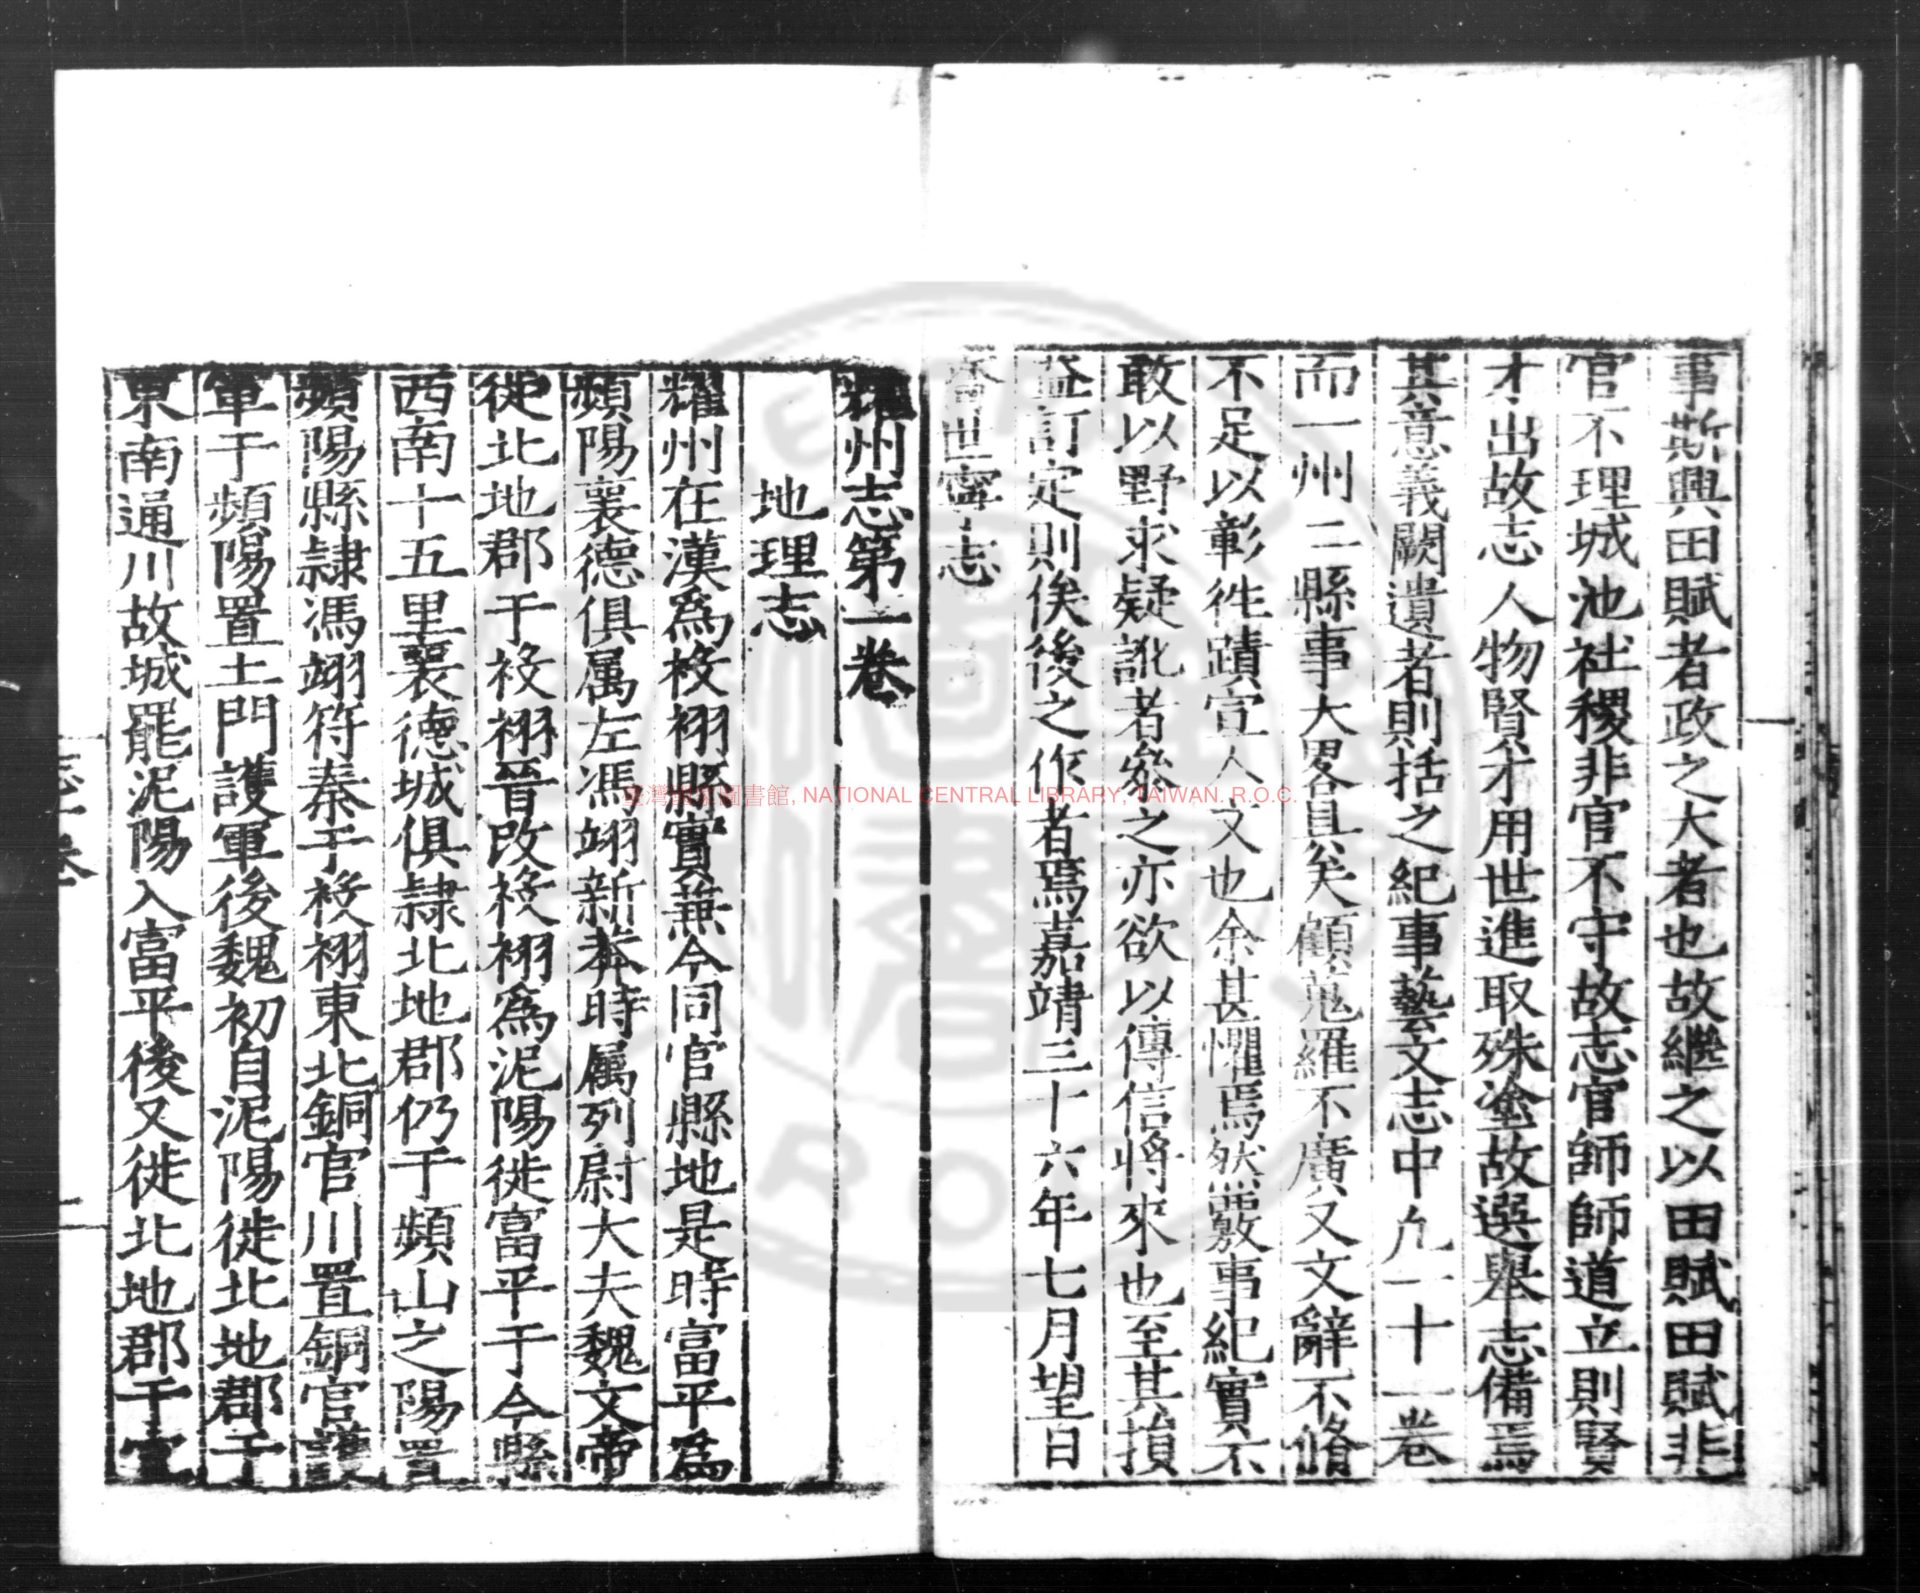 事斯興田賦者政之大者也故繼之以田賦田賦非
官不理城池社稷非官不守故志官師師道立則賢
才出故志人物賢才用世進取殊塗故選舉志備焉
其意義闕遺者則括之紀事藝文志中凡一十一卷
而一州二縣事大畧具矣顧蒐羅不廣又文辭不脩
不足以彰徃蹟宣人文也余甚懼焉然覈事紀實不
敢以野求疑訛者叅之亦欲以傳信將來也至其損
益訂定則俟後之作者焉嘉靖三十六年七月望日
喬世寧志
耀州志第一卷
地理志
耀州在漢爲祋祤縣實兼今同官縣地是時富平爲
頻陽襄德俱属左馮翊新莽時属列尉大夫魏文帝
徙北地郡于祋祤晉改祋祤爲泥陽徙富平于今縣
西南十五里襄德城俱隷北地郡仍于頻山之陽置
頻陽縣隷馮翊符秦于祋祤東北銅官川置銅官護
軍于頻陽置土門護軍後魏初自泥陽徙北地郡于
東南通川故城罷泥陽入富平後又徙北地郡于宜
志一卷
一
臺灣國家圖書館, NATIONAL CENTRAL LIBRARY, TAIWAN, R.O.C.